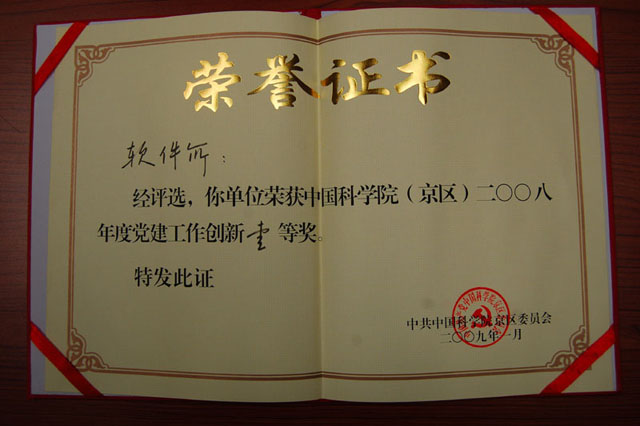 荣誉证书
软件所：
经评选，你单位荣获中国科学院（京区）二〇〇八
年度党建工作创新壹等奖。
特发此证
中共中国科学院京区委员会
二〇〇九年一月